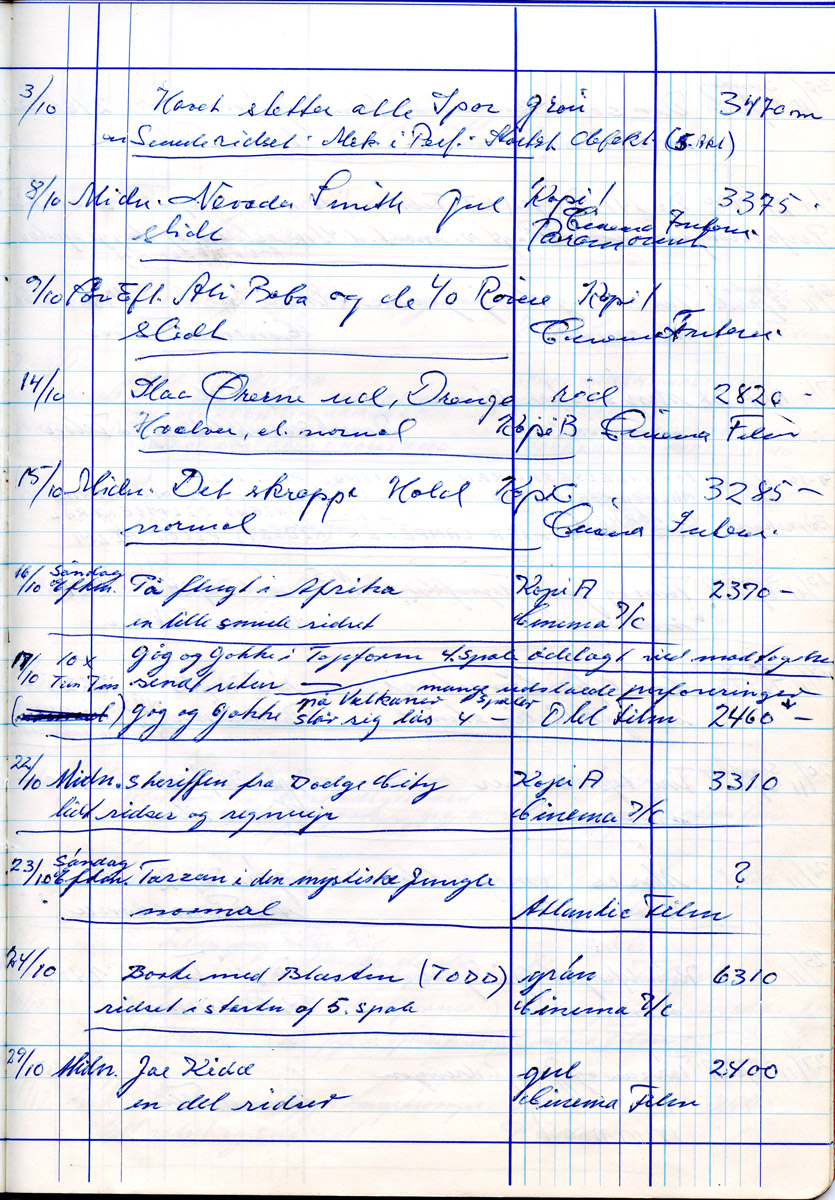 3/10 Havet sletter alle Spor grøn 3470 m
en Smule ridset. Mek. i Perf. Stærkt defekt (5. Akt)
8/10 Midn. Nevada Smith gul Kopi 1 3375 -
slidt Cinema Intern.
Paramount
9/10 Efl. Ali Baba og de 40 Røvere Kopi 1
slidt Cinema Intern.
14/10 Slaa Ørerne ud, Drenge rød 2820 -
Hvalver, el. normal Kopi B Cinema Film
15/10 Midn. Det skrappe Hold Kopi C. 3285 -
normal Cinema Intern.
16/10 Søndag Eftm. På flugt i Afrika Kopi A 2370 -
en lille smule ridset Cinema I/C
17/10 10 x Gøg og Gokke i Topform 4. spole ødelagt ved modtagelse
Tim Tim sendt retur — mange udslåede perforeringer
på Vulkaner spoler
Gøg og Gokke slår sig løs 4 - Obel Film 2460 -
22/10 Midn. Sheriffen fra Dodge City Kopi A 3310
lidt ridser og regnvejr Cinema I/C
23/10 Søndag Eftm. Tarzan i den mystiske Jungle ?
normal Atlantic Film
24/10 Borte med Blæsten (TODD) grøn 6310
ridset i starten af 5. spole Cinema I/C
29/10 Midn. Joe Kidd gul 2400
en del ridset Cinema Film